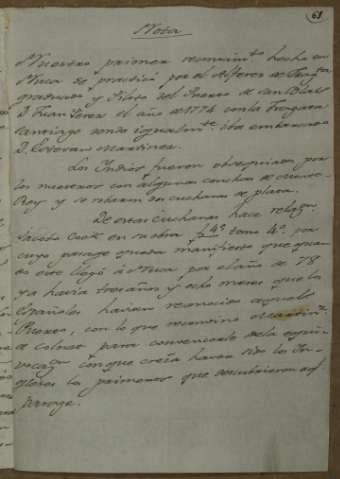 68
Nota
Nuestro primer reconocim.to hecho en
Nuca se practicó por el Alferez de Frag.ta
graduado y Piloto del Puerto de San Blas
D. Juan Perez el año de 1774 con la Fragata
Santiago donde igualm.te iba embarcado
D. Estevan Martinez.
Los Indios fueron obsequiados por
los nuestros con algunas conchas de Monte-
Rey y se robaron dos cucharas de plata.
De estas Cucharas hace relaz.n
Cook en su obra 4.º tomo 4.º, por
cuyo parage queda manifiesto que quan-
do este llegó á Nuca por el año de 78
ya havia tres años y ocho meses que los
Españoles havian reconocido aquel
Puerto, con lo que reconvino Martin.z
á Colnet para convencerlo de la equi-
vocaz.n con que creía haver sido los In-
gleses los primeros que descubrieron aq.l
parage.